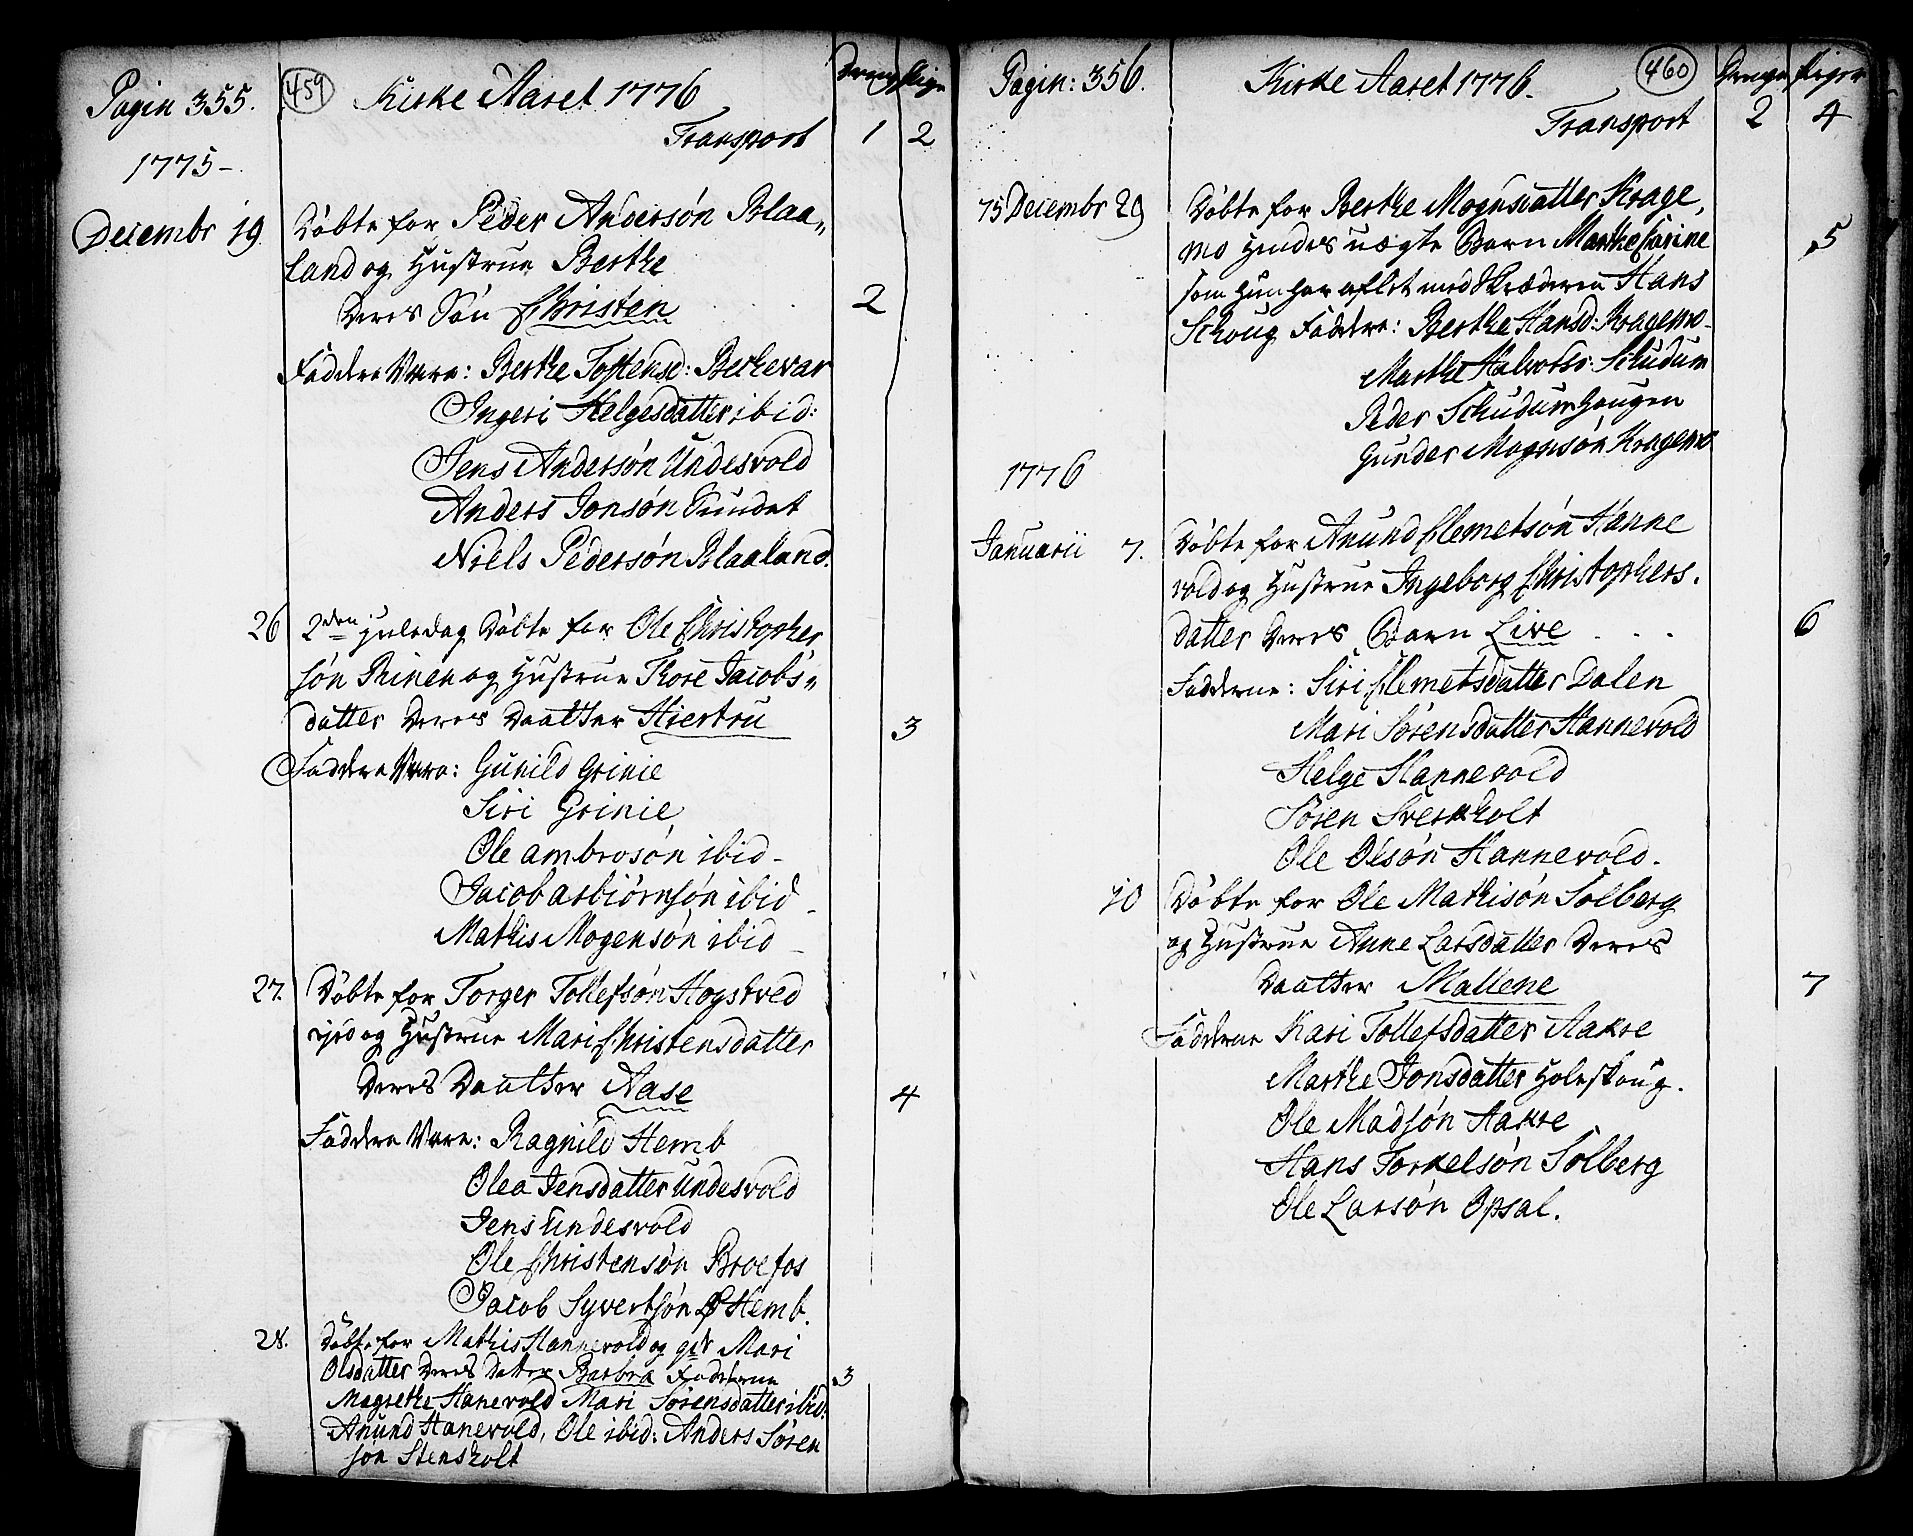 Pagin 355. 459 Kirke Aaret 1776 Drenge Piger
Transport 1 2
1775-
Decembr 19. Döbte for Peder Andersön Blaa„
land og Hustrue Berthe
Deres Sön Christen 2
Faddere Vare: Berthe Tostensd: Berkevar
Ingeri Helgesdatter ibid:
Jens Andersön Undesvold
Anders Jonsön Sundet
Niels Pedersön Blaaland.
26 2den Juledag Döbte for Ole Christopher
sön Rinen og Hustrue Thore Jacobs„
datter Deres Daatter Hiertru 3
Faddere Vare: Gunild Grinie
Siri Grinie
Ole ambrosön ibid-
Jacob asbiörnsön ibid
Mathis Mogensön ibid -
27. Döbte for Torger Tollefsön Hogstved
ejed og Hustrue Mari Christensdatter
Deres Daatter Aase 4
Faddere Vare: Ragnild Hemb
Olea Jensdatter Undesvold
Jens Undesvold
Ole Christensön Broefos
Jacob Syvertsön Hemb.
28. Döbt. for Mathis Hannevold og qst Mari
Olsdatter Deres Datter Barbra Fadderne 3
Magrethe Hanevold Mari Sörensdatter ibid.
Anund Hanevold, Ole ibid: Anders Sören
sön Stensholt
Pagin: 356. Kirke Aaret 1776. 460 Drenge Piger
Transport 2 4
75 Decembr 29 Döbte for Berthe Mognsdatter Krage,
mo Hendes uægte Barn Marthe Carine 5
som hun har aflet med Skræderen Hans
Schoug Faddere: Berthe Hansd: Kragemo-
Marthe Halvorsd: Schudum
Peder Schudumhaugen
Gunder Mognsön Kragemo
1776
Januarii 7. Döbte for Anund Clemetsön Hanne
vold og Hustrue Ingeborg Christophers.
datter Deres Barn Live 6
Fadderne: Siri Clemetsdatter Dalen
Mari Sörensdatter Hannevold
Helge Hannevold
Sören Sverkholt
Ole Olsön Hannevold.
10 Döbte for Ole Mathisön Solberg
og Hustrue Anne Larsdatter Deres
Daatter Mallene 7
Fadderne Kari Tollefsdatter Aakre
Marthe Jonsdatter Holeskoug.
Ole Madsön Aakre
Hans Torkelsön Solberg
Ole Larsön Opsal.